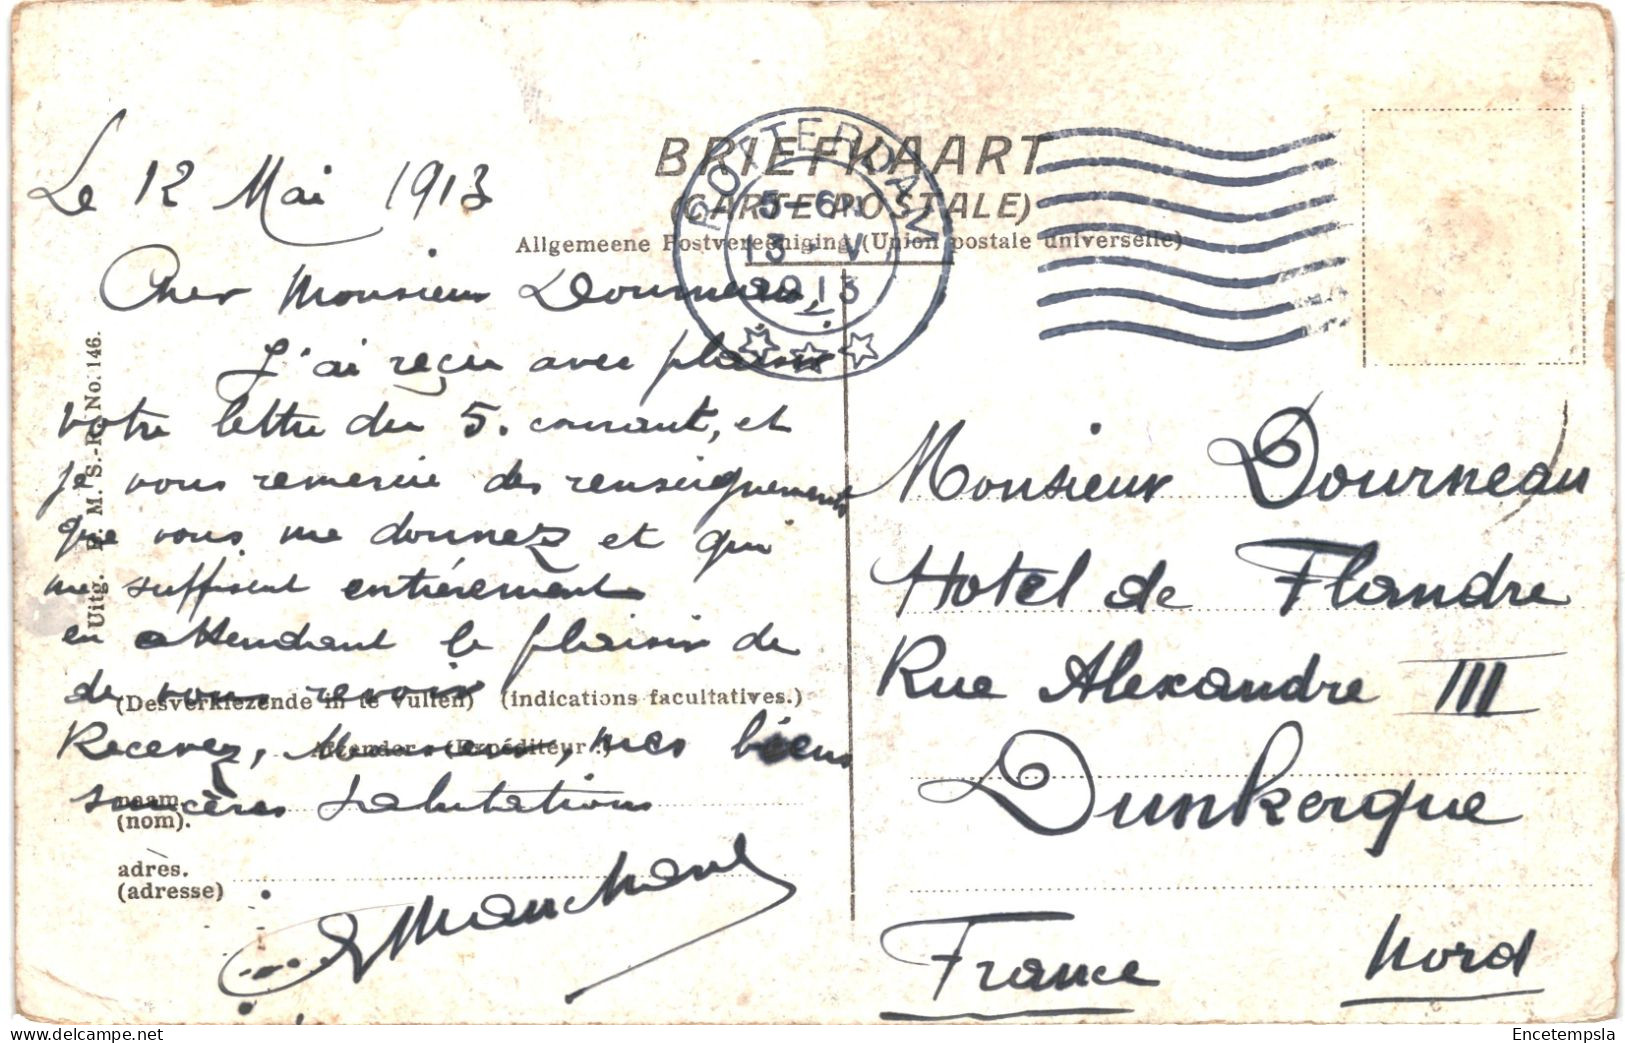 BRIEFKAART
(CARTE POSTALE)
Allgemeene Postvereeniging (Union postale universelle)
ROTTERDAM
5-6
13 V
1913
Le 12 Mai 1913
Cher Monsieur Dourneau,
J'ai reçu avec plaisir
votre lettre du 5. courant, et
je vous remercie des renseignements
que vous me donnez et qui
me suffisent entièrement
en attendant le plaisir de
de vous revoir
Recevez, Monsieur, mes biens
sincères salutations
(Desverkiezende in te vullen) (indications facultatives.)
Afzender: (Expéditeur:)
naam.
(nom).
adres.
(adresse)
Uitg. F. M. S.-R. No. 146.
Monsieur Dourneau
Hotel de Flandre
Rue Alexandre III
Dunkerque
France Nord
Encetempsla